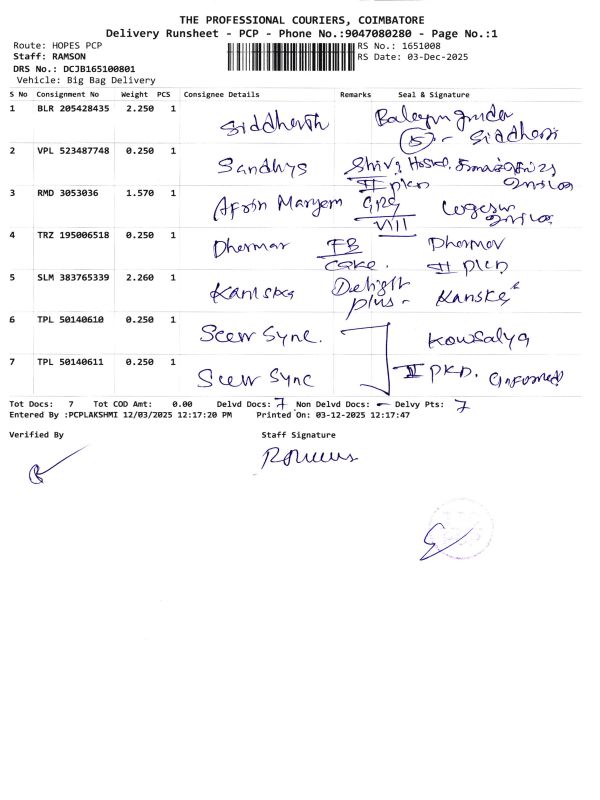 THE PROFESSIONAL COURIERS, COIMBATORE
Delivery Runsheet - PCP - Phone No.:9047080280 - Page No.:1
Route: HOPES PCP
RS No.: 1651008
Staff: RAMSON
RS Date: 03-Dec-2025
DRS No.: DCJB165100801
Vehicle: Big Bag Delivery
S No Consignment No Weight PCS Consignee Details Remarks Seal & Signature
1 BLR 205428435 2.250 1 Siddharth
5 - Siddharth
2 VPL 523487748 0.250 1 Sandhys
3 RMD 3053036 1.570 1 Afrin Maryem
VIII
4 TRZ 195006518 0.250 1 Dhermar FB Dhermar
Cake. II
5 SLM 383765339 2.260 1 Kaniska Delight
Plus -
6 TPL 50140610 0.250 1 Sync. Kowsalya
7 TPL 50140611 0.250 1 Sync II
Tot Docs: 7 Tot COD Amt: 0.00 Delvd Docs: 7 Non Delvd Docs: - Delvy Pts: 7
Entered By :PCPLAKSHMI 12/03/2025 12:17:20 PM Printed On: 03-12-2025 12:17:47
Verified By Staff Signature